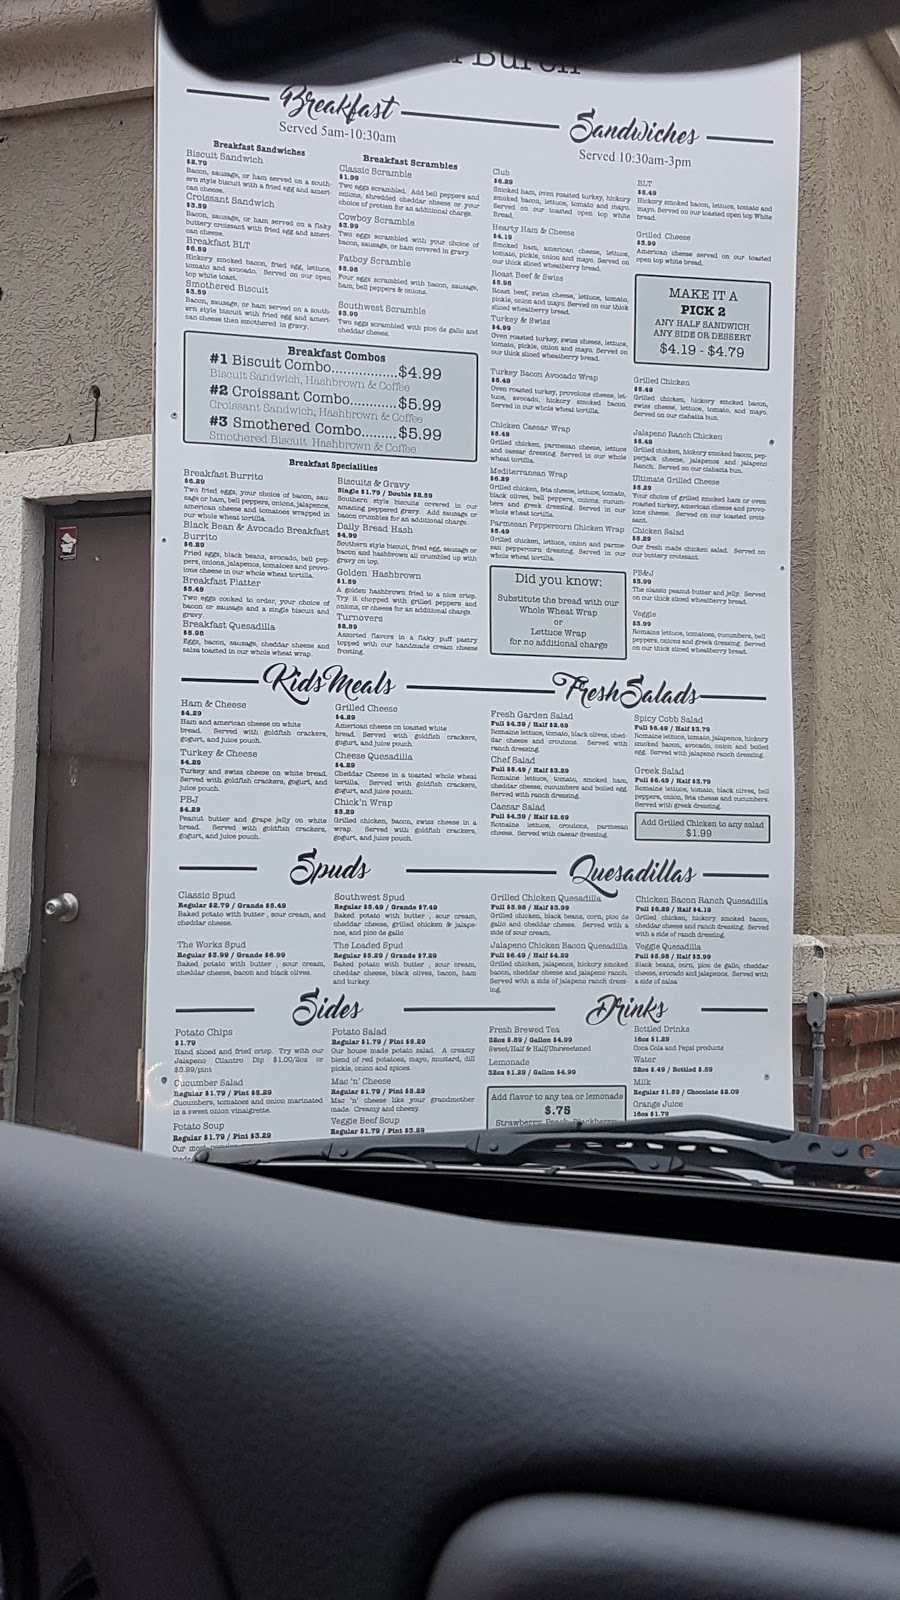 Breakfast
Served 5am-10:30am
Breakfast Sandwiches
Biscuit Sandwich
$2.79
Bacon, sausage, or ham served on a south-
ern style biscuit with a fried egg and ameri-
can cheese.
Croissant Sandwich
$3.59
Bacon, sausage, or ham served on a flaky
buttery croissant with fried egg and ameri-
can cheese.
Breakfast BLT
$6.59
Hickory smoked bacon, fried egg, lettuce,
tomato and avocado. Served on our open
top white toast.
Smothered Biscuit
$3.59
Bacon, sausage, or ham served on a south-
ern style biscuit with fried egg and ameri-
can cheese then smothered in gravy.
Breakfast Scrambles
Classic Scramble
$1.99
Two eggs scrambled. Add bell peppers and
onions, shredded cheddar cheese or your
choice of protien for an additional charge.
Cowboy Scramble
$3.99
Two eggs scrambled with your choice of
bacon, sausage, or ham covered in gravy.
Fatboy Scramble
$5.98
Four eggs scrambled with bacon, sausage,
ham, bell peppers & onions.
Southwest Scramble
$3.99
Two eggs scrambled with pico de gallo and
cheddar cheese.
Breakfast Combos
#1 Biscuit Combo.................$4.99
Biscuit Sandwich, Hashbrown & Coffee
#2 Croissant Combo............$5.99
Croissant Sandwich, Hashbrown & Coffee
#3 Smothered Combo.........$5.99
Smothered Biscuit Hashbrown & Coffee
Breakfast Specialities
Breakfast Burrito
$6.29
Two fried eggs, your choice of bacon, sau-
sage or ham, bell peppers, onions, jalapenos,
american cheese and tomatoes wrapped in
our whole wheat tortilla.
Black Bean & Avocado Breakfast
Burrito
$6.29
Fried eggs, black beans, avocado, bell pep-
pers, onions, jalapenos, tomatoes and provo-
lone cheese in our whole wheat tortilla.
Breakfast Platter
$5.49
Two eggs cooked to order, your choice of
bacon or sausage and a single biscuit and
gravy.
Breakfast Quesadilla
$5.98
Eggs, bacon, sausage, cheddar cheese and
salsa toasted in our whole wheat wrap.
Biscuits & Gravy
Single $1.79 / Double $2.59
Southern style biscuits covered in our
amazing peppered gravy. Add sausage or
bacon crumbles for an additional charge.
Daily Bread Hash
$4.99
Southern style biscuit, fried egg, sausage or
bacon and hashbrown all crumbled up with
gravy on top.
Golden Hashbrown
$1.59
A golden hashbrown fried to a nice crisp.
Try it chopped with grilled peppers and
onions, or cheese for an additional charge.
Turnovers
$2.99
Assorted flavors in a flaky puff pastry
topped with our handmade cream cheese
frosting.
Sandwiches
Served 10:30am-3pm
Club
$6.29
Smoked ham, oven roasted turkey, hickory
smoked bacon, lettuce, tomato and mayo.
Served on our toasted open top white
Bread.
Hearty Ham & Cheese
$4.19
Smoked ham, american cheese, lettuce,
tomato, pickle, onion and mayo. Served on
our thick sliced wheatberry bread.
Roast Beef & Swiss
$5.98
Roast beef, swiss cheese, lettuce, tomato,
pickle, onion and mayo. Served on our thick
sliced wheatberry bread.
Turkey & Swiss
$4.99
Oven roasted turkey, swiss cheese, lettuce,
tomato, pickle, onion and mayo. Served on
our thick sliced wheatberry bread.
BLT
$5.49
Hickory smoked bacon, lettuce, tomato and
mayo. Served on our toasted open top White
bread.
Grilled Cheese
$3.99
American cheese served on our toasted
open top white bread.
MAKE IT A
PICK 2
ANY HALF SANDWICH
ANY SIDE OR DESSERT
$4.19 - $4.79
Turkey Bacon Avocado Wrap
$5.49
Oven roasted turkey, provolone cheese, let-
tuce, avocado, hickory smoked bacon.
Served in our whole wheat tortilla.
Chicken Caesar Wrap
$5.49
Grilled chicken, parmesan cheese, lettuce
and caesar dressing. Served in our whole
wheat tortilla.
Mediterranean Wrap
$6.29
Grilled chicken, feta cheese, lettuce, tomato,
black olives, bell peppers, onions, cucum-
bers and greek dressing. Served in our
whole wheat tortilla.
Parmesan Peppercorn Chicken Wrap
$5.49
Grilled chicken, lettuce, onion and parme-
san peppercorn dressing. Served in our
whole wheat tortilla.
Did you know:
Substitute the bread with our
Whole Wheat Wrap
or
Lettuce Wrap
for no additional charge
Grilled Chicken
$5.49
Grilled chicken, hickory smoked bacon,
swiss cheese, lettuce, tomato, and mayo.
Served on our ciabatta bun.
Jalapeno Ranch Chicken
$5.49
Grilled chicken, hickory smoked bacon, pep-
perjack cheese, jalapenos and jalapeno
Ranch. Served on our ciabatta bun.
Ultimate Grilled Cheese
$5.29
Your choice of grilled smoked ham or oven
roasted turkey, american cheese and provo-
lone cheese. Served on our toasted crois-
sant.
Chicken Salad
$5.29
Our fresh made chicken salad. Served on
our buttery croissant.
PB&J
$3.99
The classic peanut butter and jelly. Served
on our thick sliced wheatberry bread.
Veggie
$3.99
Romaine lettuce, tomatoes, cucumbers, bell
peppers, onions and greek dressing. Served
on our thick sliced wheatberry bread.
Kids Meals
Ham & Cheese
$4.29
Ham and american cheese on white
bread. Served with goldfish crackers,
gogurt, and juice pouch.
Turkey & Cheese
$4.29
Turkey and swiss cheese on white bread.
Served with goldfish crackers, gogurt, and
juice pouch.
PBJ
$4.29
Peanut butter and grape jelly on white
bread. Served with goldfish crackers,
gogurt, and juice pouch.
Grilled Cheese
$4.29
American cheese on toasted white
bread. Served with goldfish crackers,
gogurt, and juice pouch.
Cheese Quesadilla
$4.29
Cheddar Cheese in a toasted whole wheat
tortilla. Served with goldfish crackers,
gogurt, and juice pouch.
Chick'n Wrap
$5.29
Grilled chicken, bacon, swiss cheese in a
wrap. Served with goldfish crackers,
gogurt, and juice pouch.
Fresh Salads
Fresh Garden Salad
Full $4.39 / Half $2.69
Romaine lettuce, tomato, black olives, ched-
dar cheese and croutons. Served with
ranch dressing.
Chef Salad
Full $5.49 / Half $3.29
Romaine lettuce, tomato, smoked ham,
cheddar cheese, cucumbers and boiled egg.
Served with ranch dressing.
Caesar Salad
Full $4.39 / Half $2.69
Romaine lettuce, croutons, parmesan
cheese. Served with caesar dressing.
Spicy Cobb Salad
Full $6.49 / Half $3.79
Romaine lettuce, tomato, jalapenos, hickory
smoked bacon, avocado, onion and boiled
egg. Served with jalapeno ranch dressing.
Greek Salad
Full $6.49 / Half $3.79
Romaine lettuce, tomato, black olives, bell
peppers, onion, feta cheese and cucumbers.
Served with greek dressing.
Add Grilled Chicken to any salad
$1.99
Spuds
Classic Spud
Regular $2.79 / Grande $5.49
Baked potato with butter , sour cream, and
cheddar cheese.
The Works Spud
Regular $3.99 / Grande $6.99
Baked potato with butter , sour cream,
cheddar cheese, bacon and black olives.
Southwest Spud
Regular $5.49 / Grande $7.49
Baked potato with butter , sour cream,
cheddar cheese, grilled chicken & jalape-
nos, and pico de gallo
The Loaded Spud
Regular $5.29 / Grande $7.29
Baked potato with butter , sour cream,
cheddar cheese, black olives, bacon, ham
and turkey.
Quesadillas
Grilled Chicken Quesadilla
Full $5.98 / Half $3.99
Grilled chicken, black beans, corn, pico de
gallo and cheddar cheese. Served with a
side of sour cream.
Jalapeno Chicken Bacon Quesadilla
Full $6.49 / Half $4.29
Grilled chicken, jalapenos, hickory smoked
bacon, cheddar cheese and jalapeno ranch.
Served with a side of jalapeno ranch dress-
ing.
Chicken Bacon Ranch Quesadilla
Full $6.29 / Half $4.19
Grilled chicken, hickory smoked bacon,
cheddar cheese and ranch dressing. Served
with a side of ranch dressing.
Veggie Quesadilla
Full $5.98 / Half $3.99
Black beans, corn, pico de gallo, cheddar
cheese, avocado and jalapenos. Served with
a side of salsa
Sides
Potato Chips
$1.79
Hand sliced and fried crisp. Try with our
Jalapeno Cilantro Dip $1.00/2oz or
$5.99/pint
Cucumber Salad
Regular $1.79 / Pint $5.29
Cucumbers, tomatoes and onion marinated
in a sweet onion vinaigrette.
Potato Soup
Regular $1.79 / Pint $3.29
Our most
Potato Salad
Regular $1.79 / Pint $6.29
Our house made potato salad. A creamy
blend of red potatoes, mayo, mustard, dill
pickle, onion and spices.
Mac 'n' Cheese
Regular $1.79 / Pint $5.29
Mac 'n' cheese like your grandmother
made. Creamy and cheesy.
Veggie Beef Soup
Regular $1.79 / Pint $3.29
Drinks
Fresh Brewed Tea
32oz $.89 / Gallon $4.99
Sweet/Half & Half/Unsweetened
Lemonade
32oz $1.29 / Gallon $4.99
Add flavor to any tea or lemonade
$.75
Strawberry, Peach, Blackberry
Bottled Drinks
16oz $1.29
Coca Cola and Pepsi products
Water
32oz $.49 / Bottled $.89
Milk
Regular $1.89 / Chocolate $2.09
Orange Juice
16oz $1.79